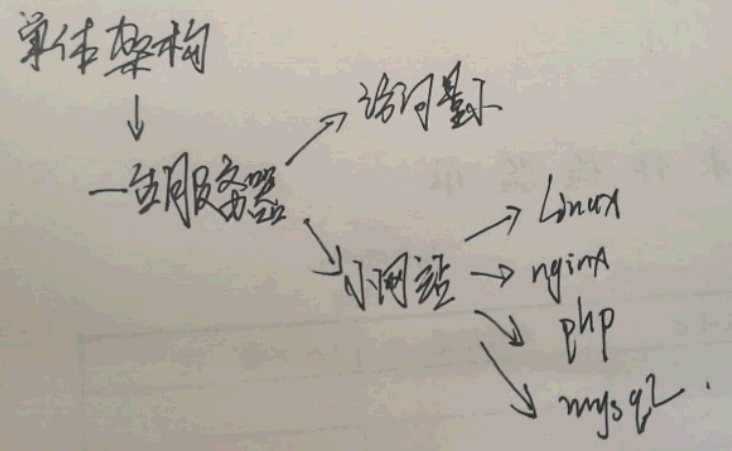 单体架构
访问量小
一台服务器
Linux
小网站
nginx
php
mysql.